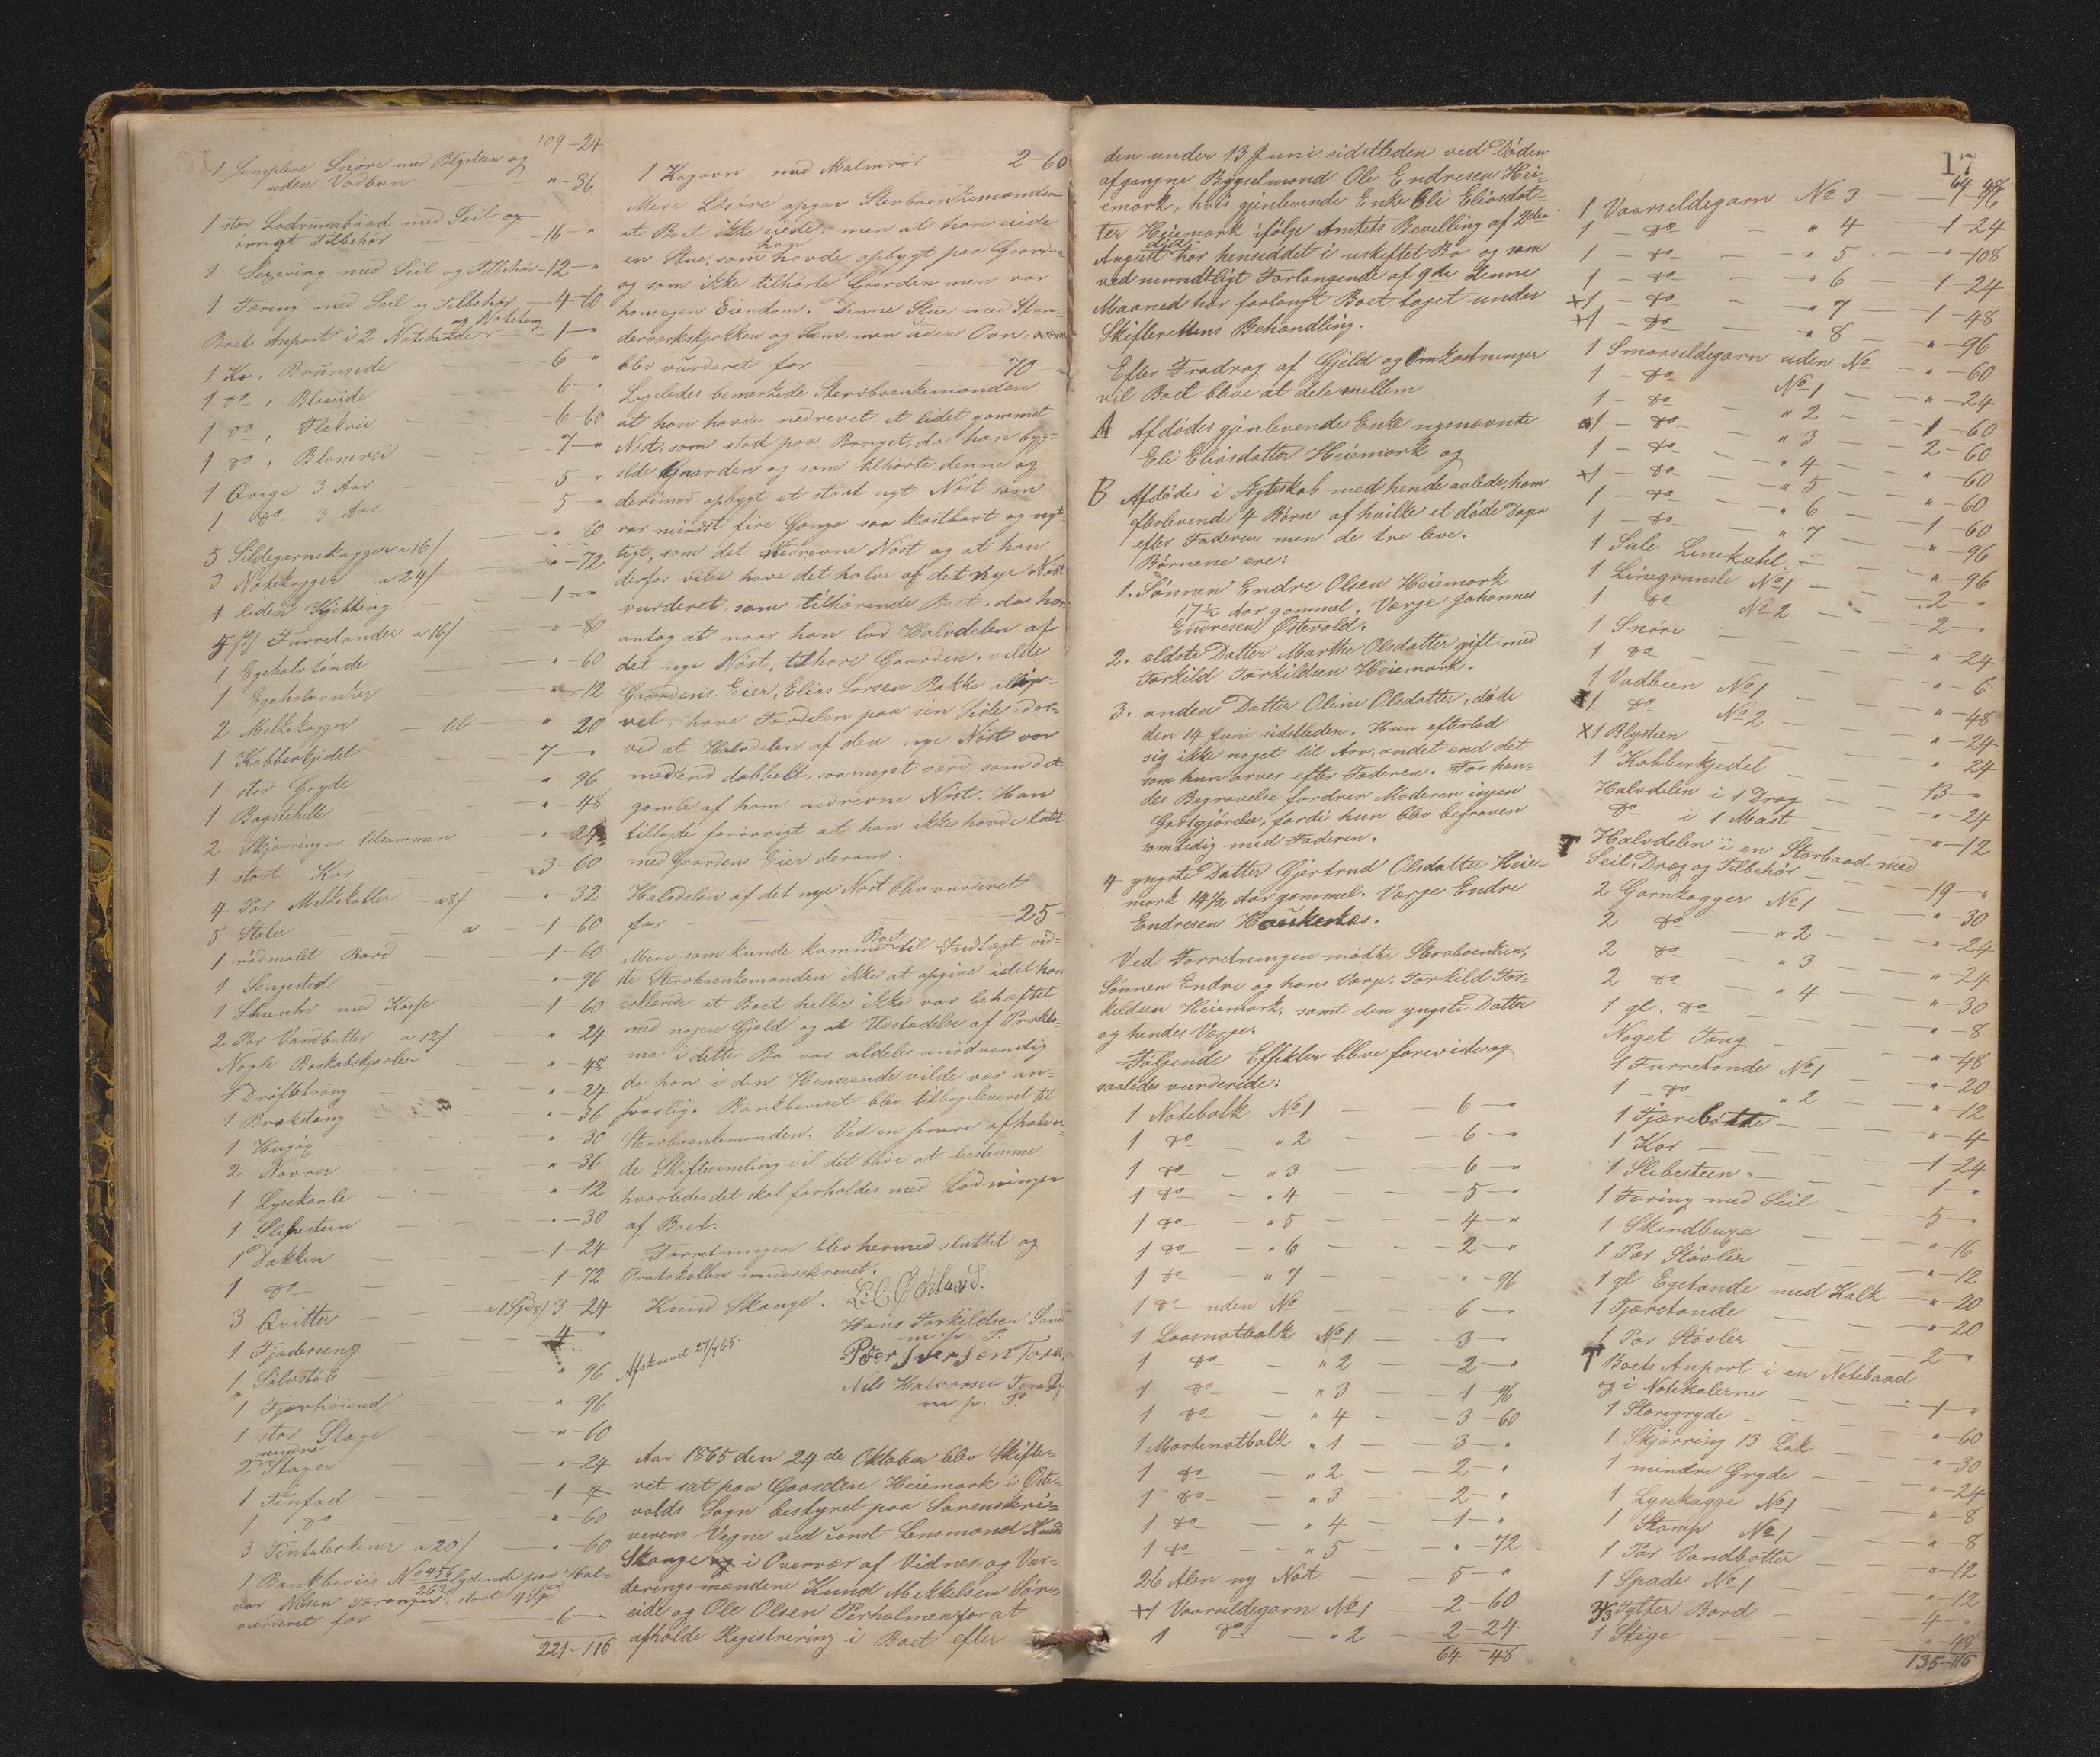 109-24
1 simplere Snøre med Blysteen og
uden Vadbeen — " - 36
1 stor Ladrumsbaad med Seil og
øvrigt Tilbehør — 16 - "
1 Sexæring med Seil og Tilbehør - 12 - "
1 Færing med Seil og Tilbehør — 4 - 60
og Notetoug
Boets Anpart i 2 Notebaade — 1 - "
1 Ko, Brunside — 6 - "
1 do, Blaaside — 6 - "
1 do, Flekrei — 6 - 60
1 do, Blomrei — 7 - "
1 Qvige 3 Aar — 5 - "
1 do 3 Aar — 5 - "
5 Sildegarnskagger a 16/ — " - 80
3 Notekagger a 24/ — " - 72
1 liden Kjetting — 1 - "
5 Furretønder a 16/ — " - 80
1 Egehalvtønde — " - 60
1 Egehalvanker — " - 12
2 Melkekagger — til — " - 20
1 Kobberkjedel — 7 - "
1 stor Gryde — " - 96
1 Bagstehelle — " - 48
2 Skjærringer tilsammen — " - 24
1 stort Kar — 3 - 60
4 Par Melkekoller — a 8/ — " - 32
5 Stoler — a — 1 - 60
1 rødmalet Bord — 1 - 60
1 Sengested — " - 96
1 Stueuhr med Kasse — 1 - 60
2 Par Vandbøtter a 12/ — " - 24
Nogle Boskabskjørler — " - 48
1 Drøftetrøug — " - 24
1 Brakstang — " - 36
1 Hugøx — " - 30
2 Navrer — " - 36
1 Lysekaale — " - 12
1 Slibesteen — " - 30
1 Dækken — 1 - 24
1 do — 1 - 72
3 Qvitter — a 1 Spd 8/ 3 - 24
1 Fjæderseng — 4 - "
1 Sølvstøb — " - 96
1 Fjærhøiend — " - 96
1 stor Stage — " - 60
mindre
2 Stager — " - 24
1 Tinfad — 1 - "
1 do — " - 60
3 Tintalerkener a 20/ — " - 60
1 Bankbeviis No 456/262 lydende paa Hal-
vor Nilsen Toranger, stort 4 Spd
vurderet for — 6 - "
221 - 116
1 Kogovn med Malmrør 2 - 60
Mere Løsøre opgav Stervboenkemanden
at Boet ikke eiede, men at han eiede
han
en Stue, som havde opbygt paa Gaarden
og som ikke tilhørte Gaarden men var
hans egen Eiendom. Denne Stue med Stæn-
derværkskjøkken og Lem, men uden Ovn,
blev vurderet for — 70 - "
Ligeledes bemærkede Stervboenkemanden
at han havde nedrevet et lidet gammelt
Nøst, som stod paa Bruget, da han byg-
slede Gaarden og som tilhørte denne og
derimod opbygt et stort nyt Nøst som
var mindst fire Gange saa kostbart og nyt-
tigt, som det nedrevne Nøst og at han
derfor vilde have det halve af det nye Nøst
vurderet som tilhørende Boet, da han
antog at naar han lod Halvdelen af
det nye Nøst, tilhøre Gaarden, vilde
Gaardens Eier, Elias Larsen Bakke allige-
vel, have Fordelen paa sin Side, der-
ved at Halvdelen af den nye Nøst var
mer end dobbelt saameget værd, som det
gamle af ham nedrevne Nøst. Han
tilføiede forøvrigt at han ikke havde talt
med Gaardens Eier derom.
Halvdelen af det nye Nøst blev vurderet
for — 25 -
Boet
Mere som kunde komme til Indtægt vid-
ste Stervboenkemanden ikke at opgive idet han
erklærede at Boet heller ikke var behæftet
med nogen Gjæld og at Udstædelse af Prokla-
ma i dette Bo var aldeles unødvendig
da han i den Henseende vilde være an-
svarlig. Bankbeviset blev tilbageleveret til
Stervboenkemanden. Ved en senere afholden-
de Skiftesamling vil det blive at bestemme
hvorledes det skal forholdes med Lodningen
af Boet.
Forretningen blev hermed sluttet og
Protokollen underskrevet.
Knud Skange. L. C. Økland.
Hans Torkildsen Sand
m. p. P.
Afskrevet 27/7 65.
Peer Iversen Toran
Nils Halvorsen Toranger
m. p. P.
Aar 1865 den 24de Oktober blev Skifte-
ret sat paa Gaarden Heiemark i Øste-
volds Sogn bestyret paa Sorenskri-
verens Vegne ved const Lensmand Knud
Skange i Overvær af Vidner og Vur-
deringsmændene Knud Mikkelsen Sør-
eide og Ole Olsen Perholmen for at
afholde Registrering i Boet efter
den under 13 Juni sidstleden ved Døden
afgangne Bygselmand Ole Endresen Hei-
emark, hvis gjenlevende Enke Eli Eliasdat-
ter Heiemark ifølge Amtets Bevilling af 2den
August har hensiddet i uskiftet Bo og som
ved mundtligt Forlangende af 9de denne
Maaned har forlangt Boet taget under
Skifterettens Behandling.
Efter Fradrag af Gjeld og Omkostninger
vil Boet blive at dele mellem
A Afdødes gjenlevende Enke nysnævnte
Eli Eliasdatter Heiemark og
B Afdødes i Ægteskab med hende avlede, ham
efterlevende 4 Børn af hvilke et døde Dagen
efter Faderen men de tre leve.
Børnene ere:
1. Sønnen Endre Olsen Heiemark
17½ Aar gammel. Værge Johannes
Endresen Østevold.
2. ældste Datter Marthe Olsdatter gift med
Torkild Torkildsen Heiemark.
3. anden Datter Oline Olsdatter, døde
den 14 Juni sidstleden. Hun efterlod
sig ikke noget til Arv, andet end det
som hun arver efter Faderen. For hen-
des Begravelse fordrer Moderen ingen
Godtgjørelse, fordi hun blev begraven
samtidig med Faderen.
4 yngste Datter Gjertrud Olsdatter Heie-
mark 14½ Aar gammel. Værge Endre
Endresen Haukenæs.
Ved Forretningen mødte Stervboenken,
Sønnen Endre og hans Værge, Torkild Tor-
kildsen Heiemark, samt den yngste Datter
og hendes Værge.
Følgende Effekter bleve foreviste og
saaledes vurderede:
1 Notebolk No 1 — 6 - "
1 do " 2 — 6 - "
1 do — " 3 — 6 - "
1 do — " 4 — 5 - "
1 do — " 5 — 4 - "
1 do — " 6 — 2 - "
1 do — " 7 — " - 96
1 do uden No — 6 - "
1 Laasnotbolk No 1 — 3 - "
1 do — " 2 — 2 - "
1 do — " 3 — 1 - 96
1 do — " 4 — 3 - 60
1 Mortenotbolk " 1 — 3 - "
1 do — " 2 — 2 - "
1 do — " 3 — 2 - "
1 do — " 4 — 1 - "
1 do — " 5 — " - 72
26 Alen ny Not — 5 - "
x1 Vaarsildegarn No 1 — 2 - 60
1 do — " 2 — 2 - 24
64 - 48
17
64 - 48
1 Vaarseldegarn No 3 — " - 96
1 - do — " 4 — 1 - 24
1 - do — " 5 — " - 108
1 - do — " 6 — 1 - 24
x1 - do — " 7 — 1 - 48
x1 - do — " 8 — " - 96
1 Smaaseldegarn uden No — " - 60
1 - do No 1 — " - 24
1 - do — " 2 — 1 - 60
x1 - do — " 3 — 2 - 60
1 - do — " 4 — " - 60
x1 - do — " 5 — " - 60
1 - do — " 6 — 1 - 60
1 - do — " 7 — " - 96
1 Sule Linekahl — " - 96
1 Linegrunsle No 1 — 2 - "
1 do No 2 — 2 - "
1 Snøre — " - 24
1 do — " - 6
1 Vadbeen No 1 — " - 48
x1 do No 2 — " - 24
x1 Blysteen — " - 24
1 Kobberkjedel — 13 - "
Halvdelen i 1 Dræg — " - 24
do i 1 Mast — " - 12
T Halvdelen i en Storbaad med
Seil, Dræg og Tilbehør — 19 - "
2 Garnkagger No 1 — " - 30
2 do — " 2 — " - 24
2 do — " 3 — " - 24
2 do — " 4 — " - 30
1 gl. do — " - 8
Noget Toug — " - 48
1 Furretønde No 1 — " - 20
1 - do " 2 — " - 12
1 Tjærebøtte — " - 4
1 Kar — 1 - 24
1 Slibesteen — 1 - "
1 Færing med Seil — 5 - "
1 Skindbuxe — " - 16
1 Par Støvler — " - 12
1 gl Egetønde med Kalk — " - 20
1 Tjæretønde — " - 20
1 Par Støvler — 2 - "
T Boets Anpart i en Notebaad
og i Notekalerne — 1 - "
1 Storegryde — " - 60
1 Skjærring 13 Lak — " - 30
1 mindre Gryde — " - 24
1 Lysekagge No 1 — " - 8
1 Stamp No 1 — " - 8
1 Par Vandbøtter — " - 12
1 Spade No 1 — " - 12
3/3 Tylfter Bord — 4 - "
1 Stige — " - 48
135 - 116